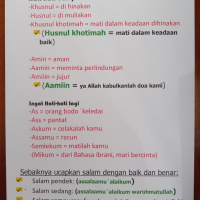 -Khusnul = di hinakan
-Husnul = di muliakan
-Khusnul khotimah = mati dalam keadaan dihinakan
(Husnul khotimah = mati dalam keadaan
baik)
-Amin = aman
-Aamin = meminta perlindungan
-Amiiin = jujur
(Aamiin = ya Allah kabulkanlah doa kami)
Ingat Beti-beti lagi
-As = orang bodo ¨keledai
-Ass = pantat
-Askum = celakalah kamu
-Assamu = racun
-Samlekum = matilah kamu
-(Mikum = dari Bahasa Ibrani, mari bercinta)
Sebaiknya ucapkan salam dengan baik dan benar:
Salam pendek: (assalaamu¨alaikum)
Salam sedang: (assalaamu¨alaikum warohmatullah)